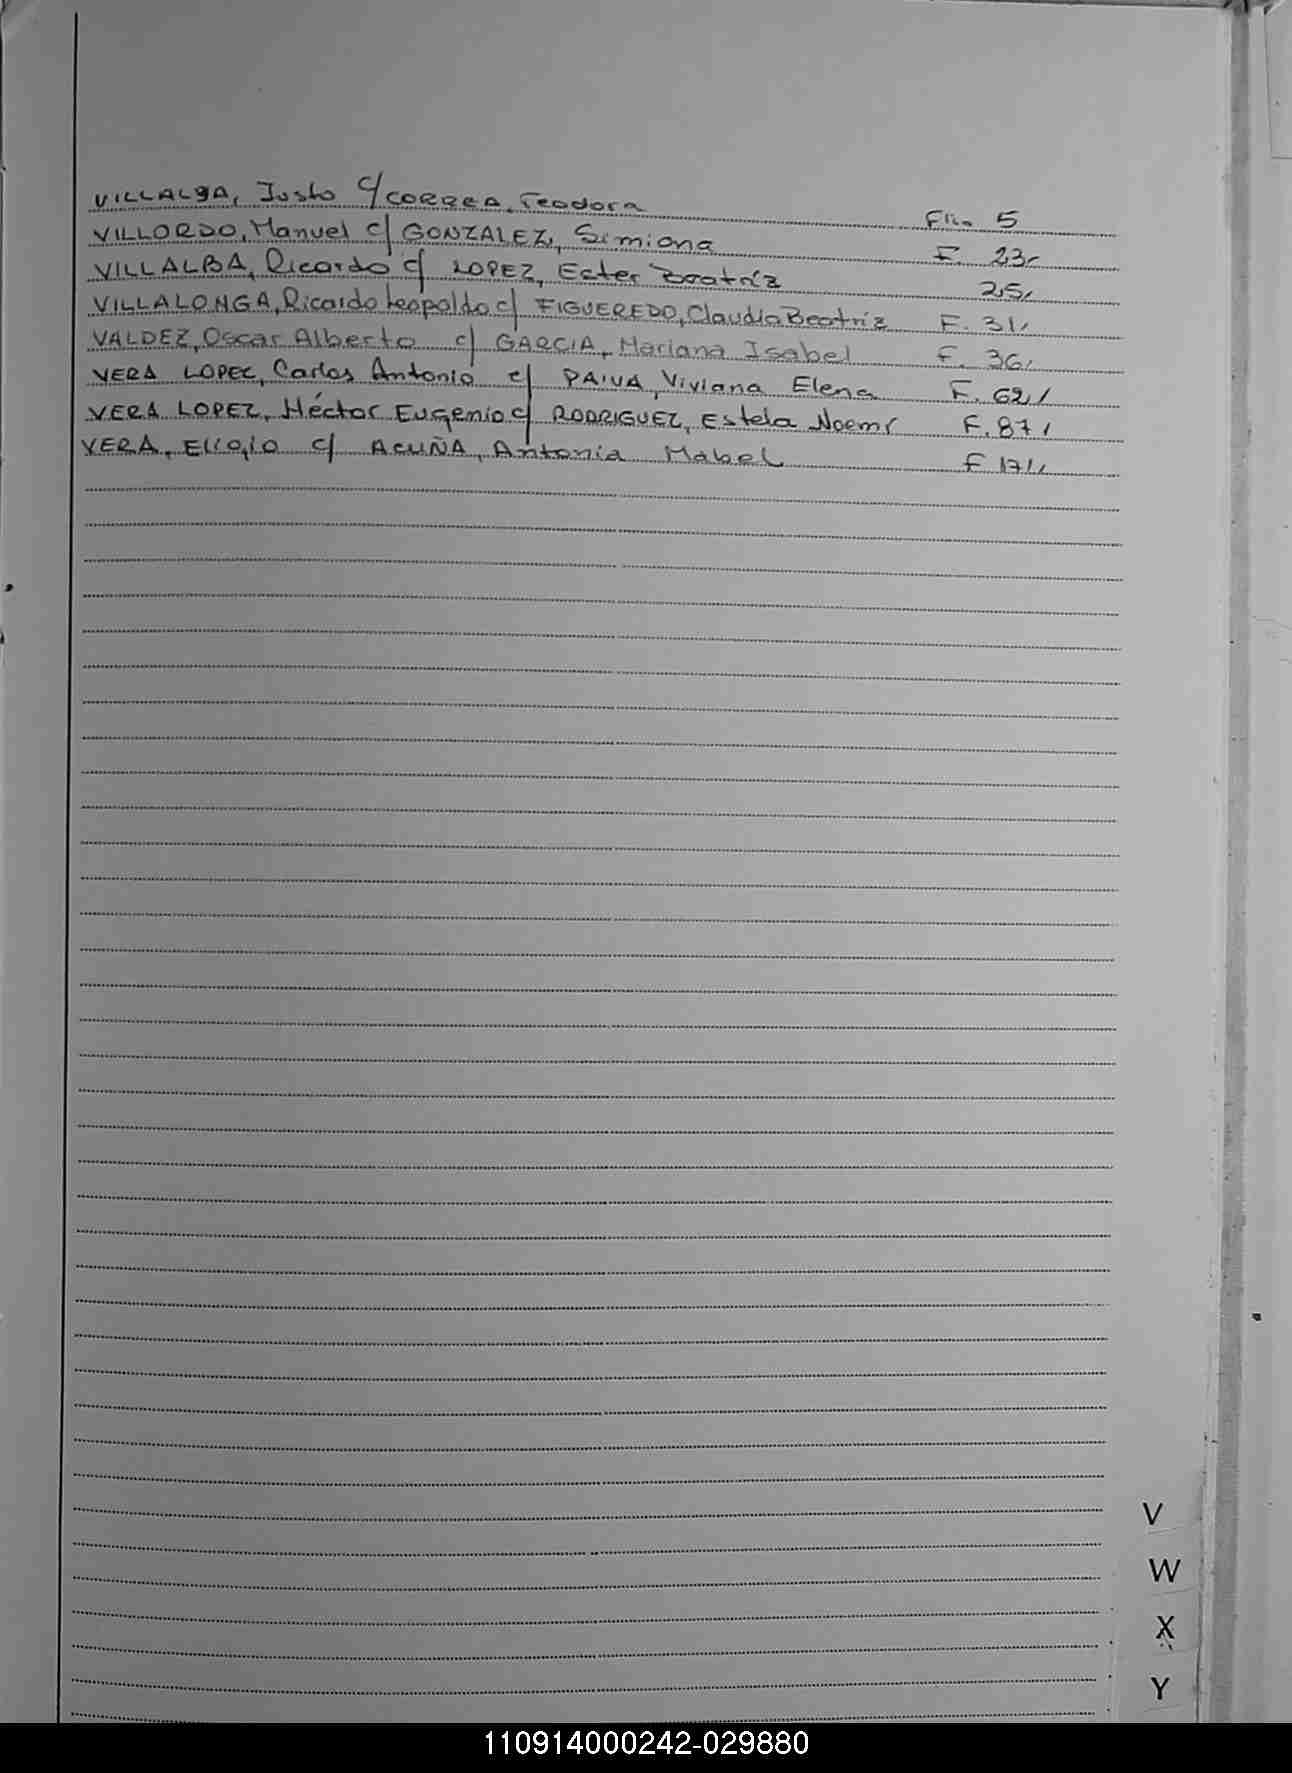 VILLALBA, Justo c/ CORREA, Teodora Flio. 5
VILLORDO, Manuel c/ GONZALEZ, Simiona F. 23,
VILLALBA, Ricardo c/ LOPEZ, Ester Beatríz 25,
VILLALONGA, Ricardo Leopoldo c/ FIGUEREDO, Claudia Beatriz F. 31,
VALDEZ, Oscar Alberto c/ GARCIA, Mariana Isabel F. 36,
VERA LOPEZ, Carlos Antonio c/ PAIVA, Viviana Elena F. 62,
VERA LOPEZ, Héctor Eugenio c/ RODRIGUEZ, Estela Noemí F. 87,
VERA, Eligio c/ ACUÑA, Antonia Mabel F 171,
V
W
X
Y
110914000242-029880